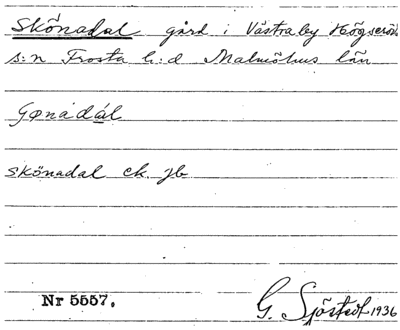 Skönadal gård i Västraby Högseröd
s:n Frosta h:d Malmöhus län
skönadal ek. jb
Nr 5557.
G. Sjöstedt 1936